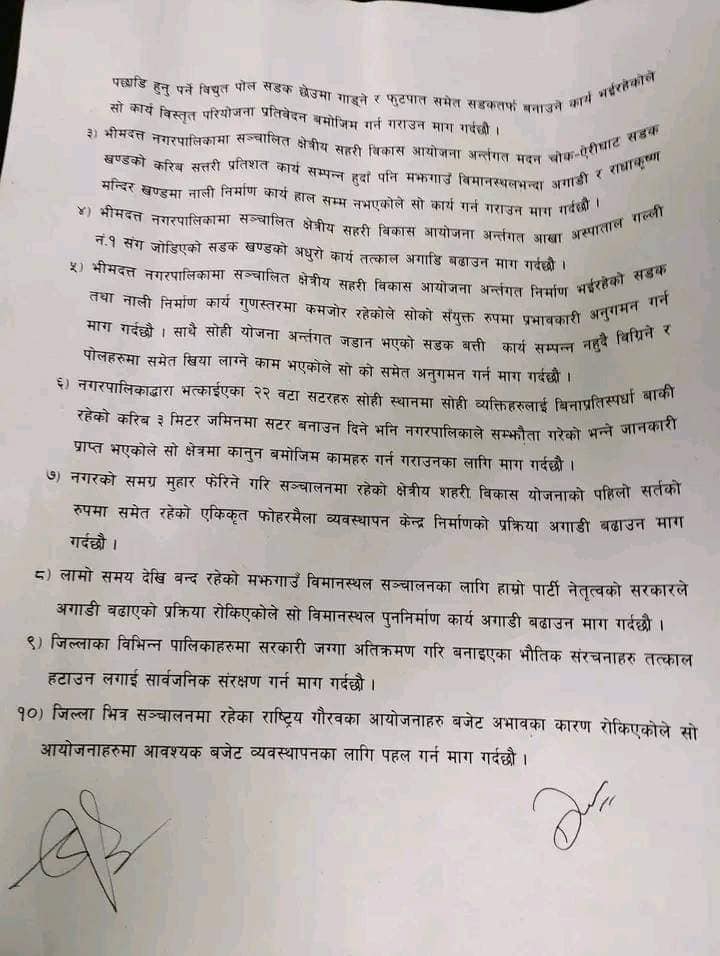 पछाडि हुनु पर्ने विद्युत पोल सडक छेउमा गाड्ने र फुटपात समेत सडकतर्फ बनाउने कार्य भईरहेकोले
सो कार्य विस्तृत परियोजना प्रतिवेदन बमोजिम गर्न गराउन माग गर्दछौ ।
३) भीमदत्त नगरपालिकामा सञ्चालित क्षेत्रीय सहरी विकास आयोजना अर्न्तगत मदन चोक-ऐरीघाट सडक
खण्डको करिब सत्तरी प्रतिशत कार्य सम्पन्न हुदाँ पनि मझगाउँ विमानस्थलभन्दा अगाडी र राधाकृष्ण
मन्दिर खण्डमा नाली निर्माण कार्य हाल सम्म नभएकोले सो कार्य गर्न गराउन माग गर्दछौ ।
४) भीमदत्त नगरपालिकामा सञ्चालित क्षेत्रीय सहरी विकास आयोजना अर्न्तगत आखा अस्पाताल गल्ली
नं.१ संग जोडिएको सडक खण्डको अधुरो कार्य तत्काल अगाडि बढाउन माग गर्दछौ ।
५) भीमदत्त नगरपालिकामा सञ्चालित क्षेत्रीय सहरी विकास आयोजना अर्न्तगत निर्माण भईरहेको सडक
तथा नाली निर्माण कार्य गुणस्तरमा कमजोर रहेकोले सोको सँयुक्त रुपमा प्रभावकारी अनुगमन गर्न
माग गर्दछौ । साथै सोही योजना अर्न्तगत जडान भएको सडक बत्ती कार्य सम्पन्न नहुदै बिग्रिने र
पोलहरुमा समेत खिया लाग्ने काम भएकोले सो को समेत अनुगमन गर्न माग गर्दछौ ।
६) नगरपालिकाद्धारा भत्काईएका २२ वटा सटरहरु सोही स्थानमा सोही व्यक्तिहरुलाई बिनाप्रतिस्पर्धा बाकी
रहेको करिब ३ मिटर जमिनमा सटर बनाउन दिने भनि नगरपालिकाले सम्झौता गरेको भन्ने जानकारी
प्राप्त भएकोले सो क्षेत्रमा कानुन बमोजिम कामहरु गर्न गराउनका लागि माग गर्दछौ ।
७) नगरको समग्र मुहार फेरिने गरि सञ्चालनमा रहेको क्षेत्रीय शहरी विकास योजनाको पहिलो सर्तको
रुपमा समेत रहेको एकिकृत फोहरमैला व्यवस्थापन केन्द्र निर्माणको प्रक्रिया अगाडी बढाउन माग
गर्दछौ ।
८) लामो समय देखि बन्द रहेको मझगाउँ विमानस्थल सञ्चालनका लागि हाम्रो पार्टी नेतृत्वको सरकारले
अगाडी बढाएको प्रक्रिया रोकिएकोले सो विमानस्थल पुननिर्माण कार्य अगाडी बढाउन माग गर्दछौ ।
९) जिल्लाका विभिन्न पालिकाहरुमा सरकारी जग्गा अतिक्रमण गरि बनाइएका भौतिक संरचनाहरु तत्काल
हटाउन लगाई सार्वजनिक संरक्षण गर्न माग गर्दछौ ।
१०) जिल्ला भित्र सञ्चालनमा रहेका राष्ट्रिय गौरवका आयोजनाहरु बजेट अभावका कारण रोकिएकोले सो
आयोजनाहरुमा आवश्यक बजेट व्यवस्थापनका लागि पहल गर्न माग गर्दछौ ।